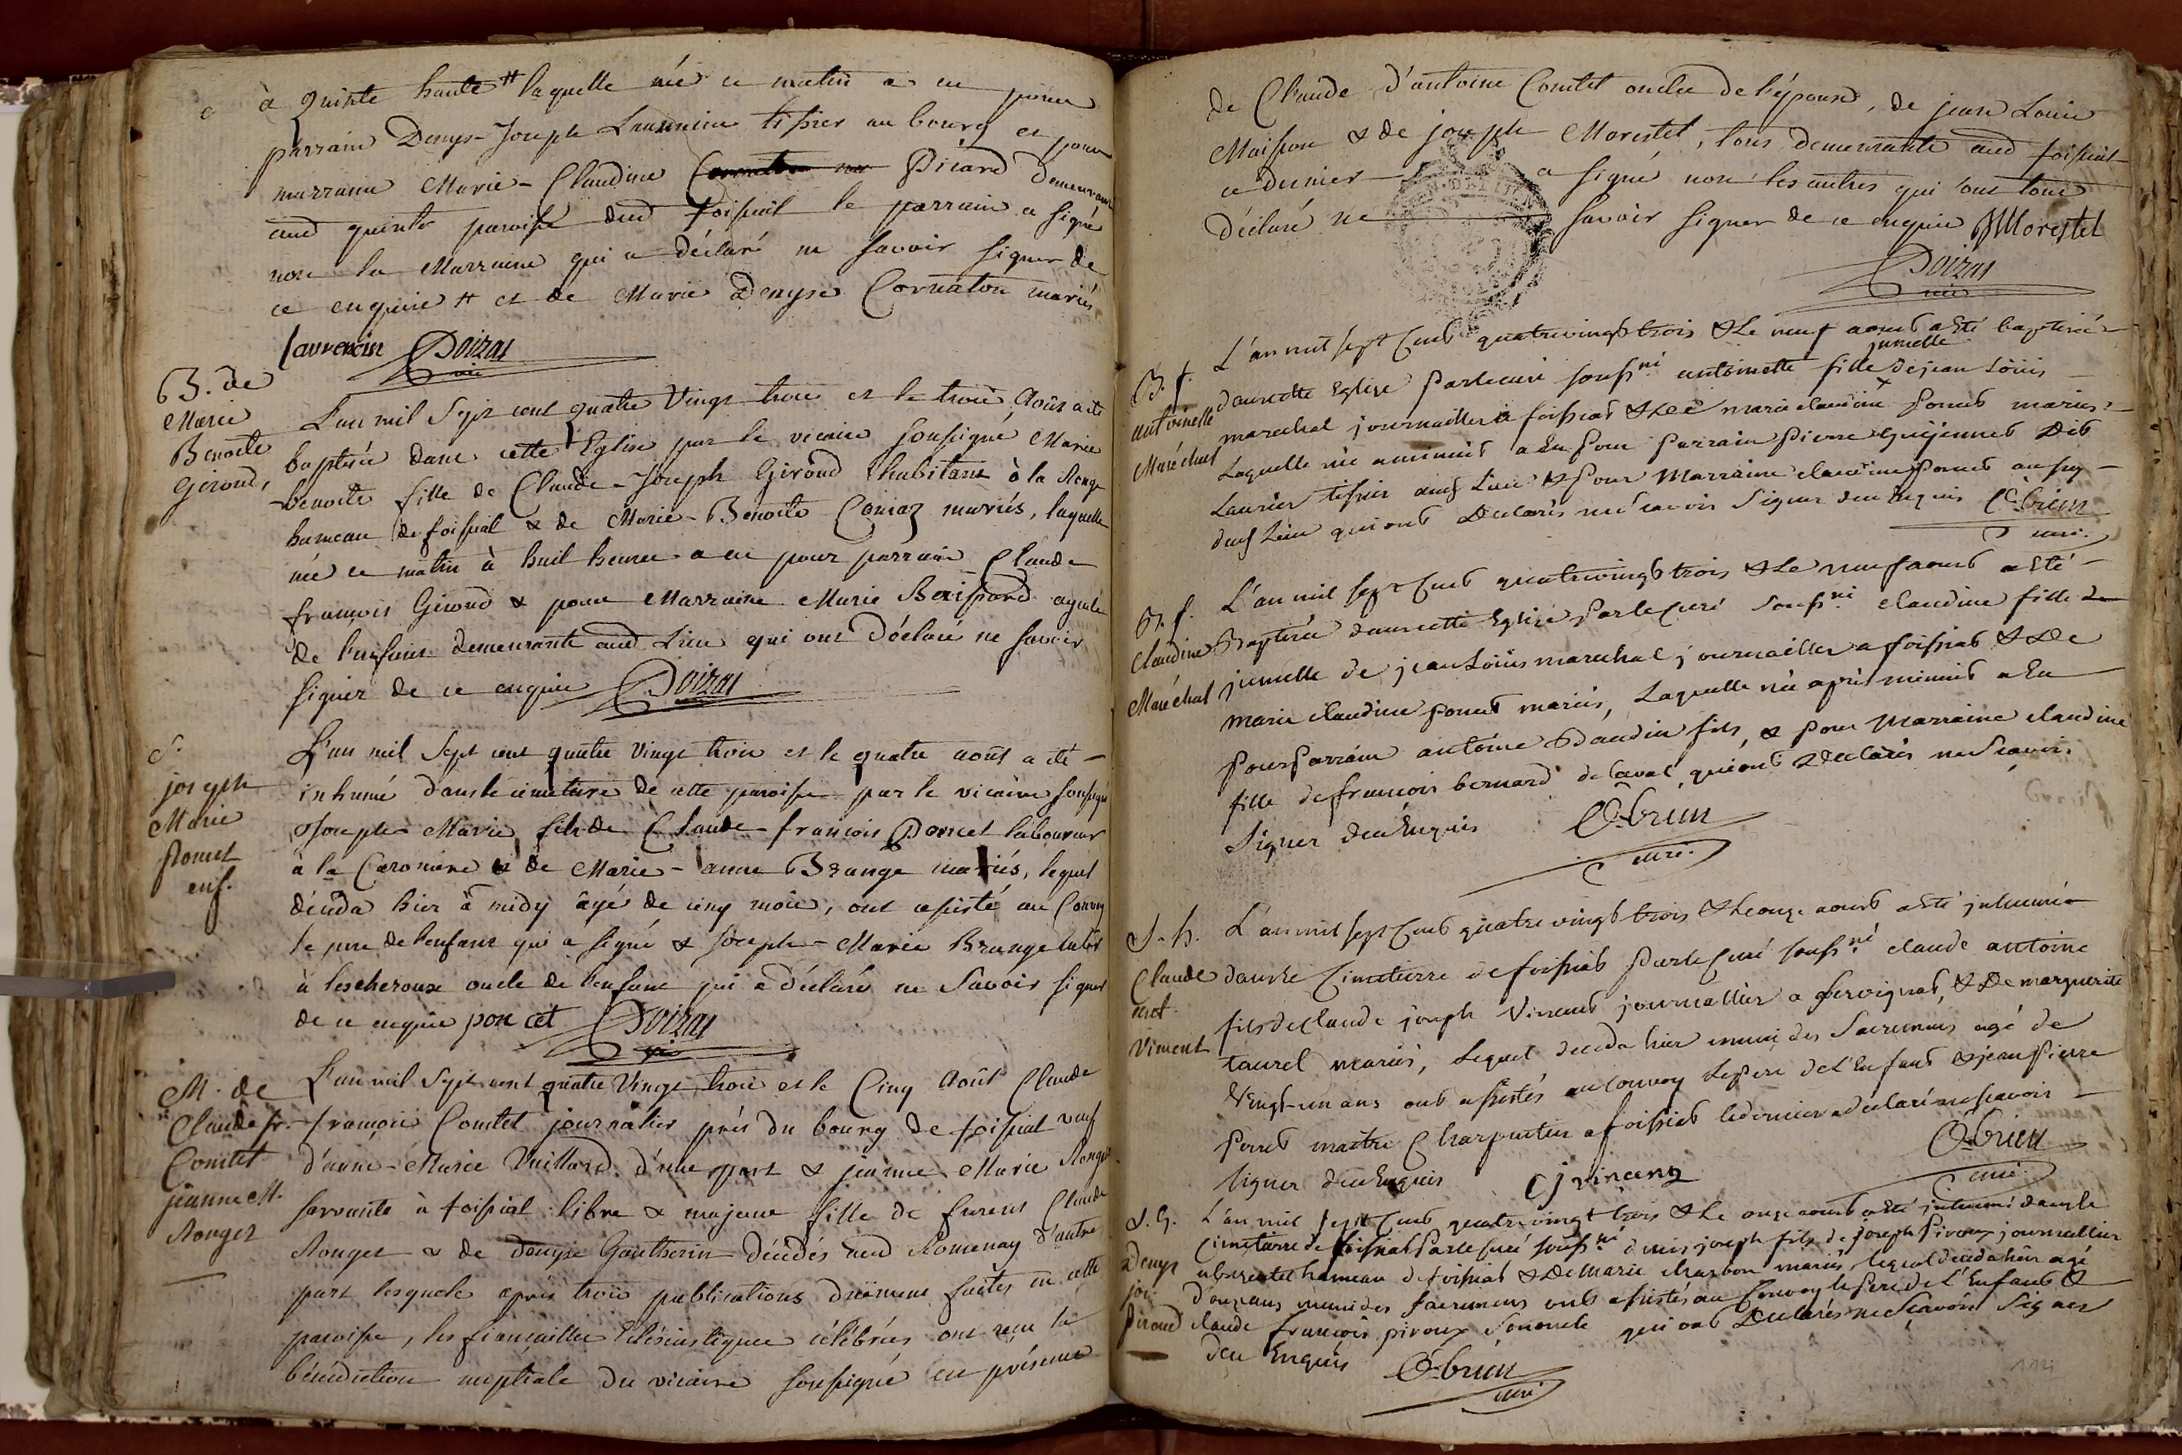 à quinte haute # laquelle née ce matin a eu pour
parrain Denys-Joseph Laurencin tissier au bourg et pour
marraine Marie-Claudine Cornaton Picard demeurant
aud quinte paroisse dud foissiat le parrain a signé
non la Marraine qui a déclaré ne savoir signer de
ce enquise # et de Marie Denyse Cornaton mariés
laurencin Doizat
vic
B. de
Marie
Benoite
Giroud,
L'an mil Sept cent quatre Vingt trois et le trois Août a été
baptisée dans cette Eglise par le vicaire soussigné Marie
benoite fille de Claude-Joseph Giroud habitant à la Rouge
hameau de foissiat & de Marie-Benoite Coniaz mariés, laquelle
née ce matin à huit heures a eu pour parrain Claude
françois Giroud & pour Marraine Marie Boissard ayeule
de l'enfant demeurants aud Lieu qui ont déclaré ne savoir
signer de ce enquis Doizat
S.
joseph
Marie
Poncet
enf.
L'an mil Sept cent quatre Vingt trois et le quatre août a été
inhumé dans le cimetiere de cette paroisse par le vicaire soussigné
Joseph Marie fils de Claude-françois Poncet laboureur
à la Caroniere & de Marie-anne Brange mariés, lequel
décéda hier à midy âgé de cinq mois, ont assisté au Convoy
le pere de l'enfant qui a signé & Joseph-Marie Brange
à lescheroux oncle de l'enfant qui a déclaré ne Savoir signer
de ce enquis poncet Doizat
vic
M. de
Claude fr.
Comtet
jeanne M.
Ronget
L'an mil Sept cent quatre Vingt trois et le Cinq Août Claude
françois Comtet journalier près du bourg de foissiat veuf
d'anne-Marie Vuillard d'une part & jeanne Marie Ronget
servante à foissiat libre & majeure fille de furent Claude
Ronget & de denyse Gautherin décédés aud Romenay d'autre
part lesquels après trois publications duement faites en cette
paroisse, les fiançailles Eclésiastiques célébrées ont reçu la
bénédiction nuptiale du vicaire soussigné en présence
de Claude d'antoine Comtet oncles de l'épouse, de jean Louis
Maisson & de joseph Morestel, tous demeurants aud foissiat
ce dernier a signé non les autres qui ont tous
déclaré ne savoir signer de ce enquis JMorestel
Doizat
vic
B. f.
antoinette
Maréchal
L'an mil sept Cent quatrevingt trois & Le neuf aoust a Eté baptisée
dans cette Eglise par le curé soussné antoinette fille jumelle de jean Loüis
marechal journaillier à foissiat & de marie claudine Ponet mariés,
Laquelle née a minuit a Eu pour parrain pierre Guÿennet Dit
Laurier tissier aud Lieu & pour Marraine claudine ponet aussy
dud Lieu qui ont Declarés ne sçavoir Signer deu Enquis O-brien
curé.
B. f.
Claudine
Maréchal
L'an mil sept Cent quatrevingt trois & Le neuf aoust a Eté
Baptisée dans cette Eglise par le Curé soussné claudine fille
jumelle de jean Loüis marechal journaillier a foissiat & de
marie claudine ponet mariés, Laquelle née après minuit a Eu
pour Parrain antoine Baudin fils & pour Marraine claudine
fille de françois bernard de laval, qui ont Declarés ne Scavoir
Signer deu Enquis O-brien
curé.
S. h.
Claude
ant.
Vincent
L'an mil sept Cent quatre vingt trois & Le onze aoust a Eté inhumé
dans le Cimetierre de foissiat par le Curé soussné claude antoine
fils de Claude joseph Vincent journallier a fervignat, & De marguerite
taurel mariés, Lequel deceda hier muni des Sacremens agé de
Vingt-un ans ont assistés au Convoy Le pere de L'Enfant & jean Pierre
Ponet maître Charpentier a foissiat le dernier a déclaré ne sçavoir
signer deu Enquis cjvincent O-brien
curé.
S. G.
Denys
jos.
Piroud
L'an mil sept Cent quatrevingt trois & Le onze aoust a Eté inhumé dans le
Cimetierre de foissiat par le Curé soussné denis joseph fils de joseph Piroux journallier
hameau de foissiat & De marie charbon mariés, lequel deceda hier agé
D'onze ans muni des Sacremens ont assistés au Convoy le Pere de L'Enfant &
claude françois piroux Son oncle qui ont Declarés ne Scavoir Signer
deu Enquis O-brien
curé